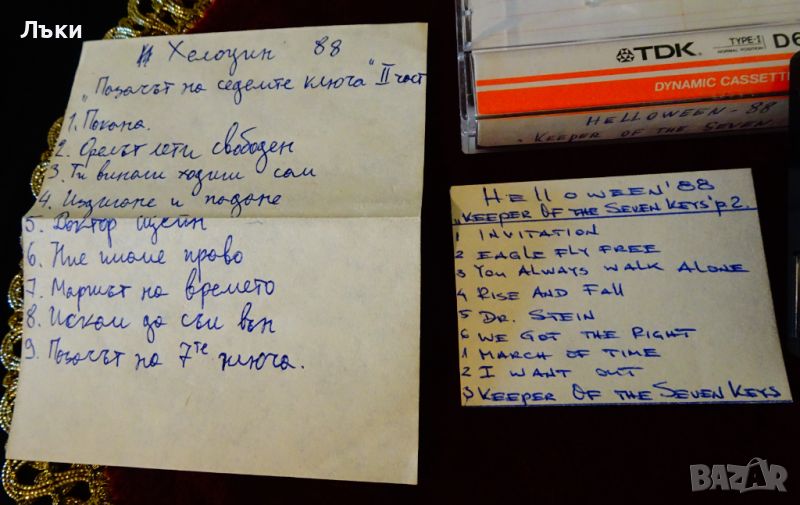 Лъки
Хеловин 88
"Пазачът на седемте ключа" II част
1. Покана.
2. Орелът лети свободен
3. Ти винаги ходиш сам
4. Издигане и падане
5. Доктор Щейн
6. Ние имаме право
7. Маршът на времето
8. Искам да съм вън
9. Пазачът на 7те ключа.
TDK TYPE I D6
NORMAL POSITION
DYNAMIC CASSETTE
HELLOWEEN - 88
KEEPER OF THE SEVEN
HELLOWEEN'88
"KEEPER OF THE SEVEN KEYS" p2.
1 INVITATION
2 EAGLE FLY FREE
3 YOU ALWAYS WALK ALONE
4 RISE AND FALL
5 DR. STEIN
6 WE GOT THE RIGHT
1 MARCH OF TIME
2 I WANT OUT
3 KEEPER OF THE SEVEN KEYS
BAZAR